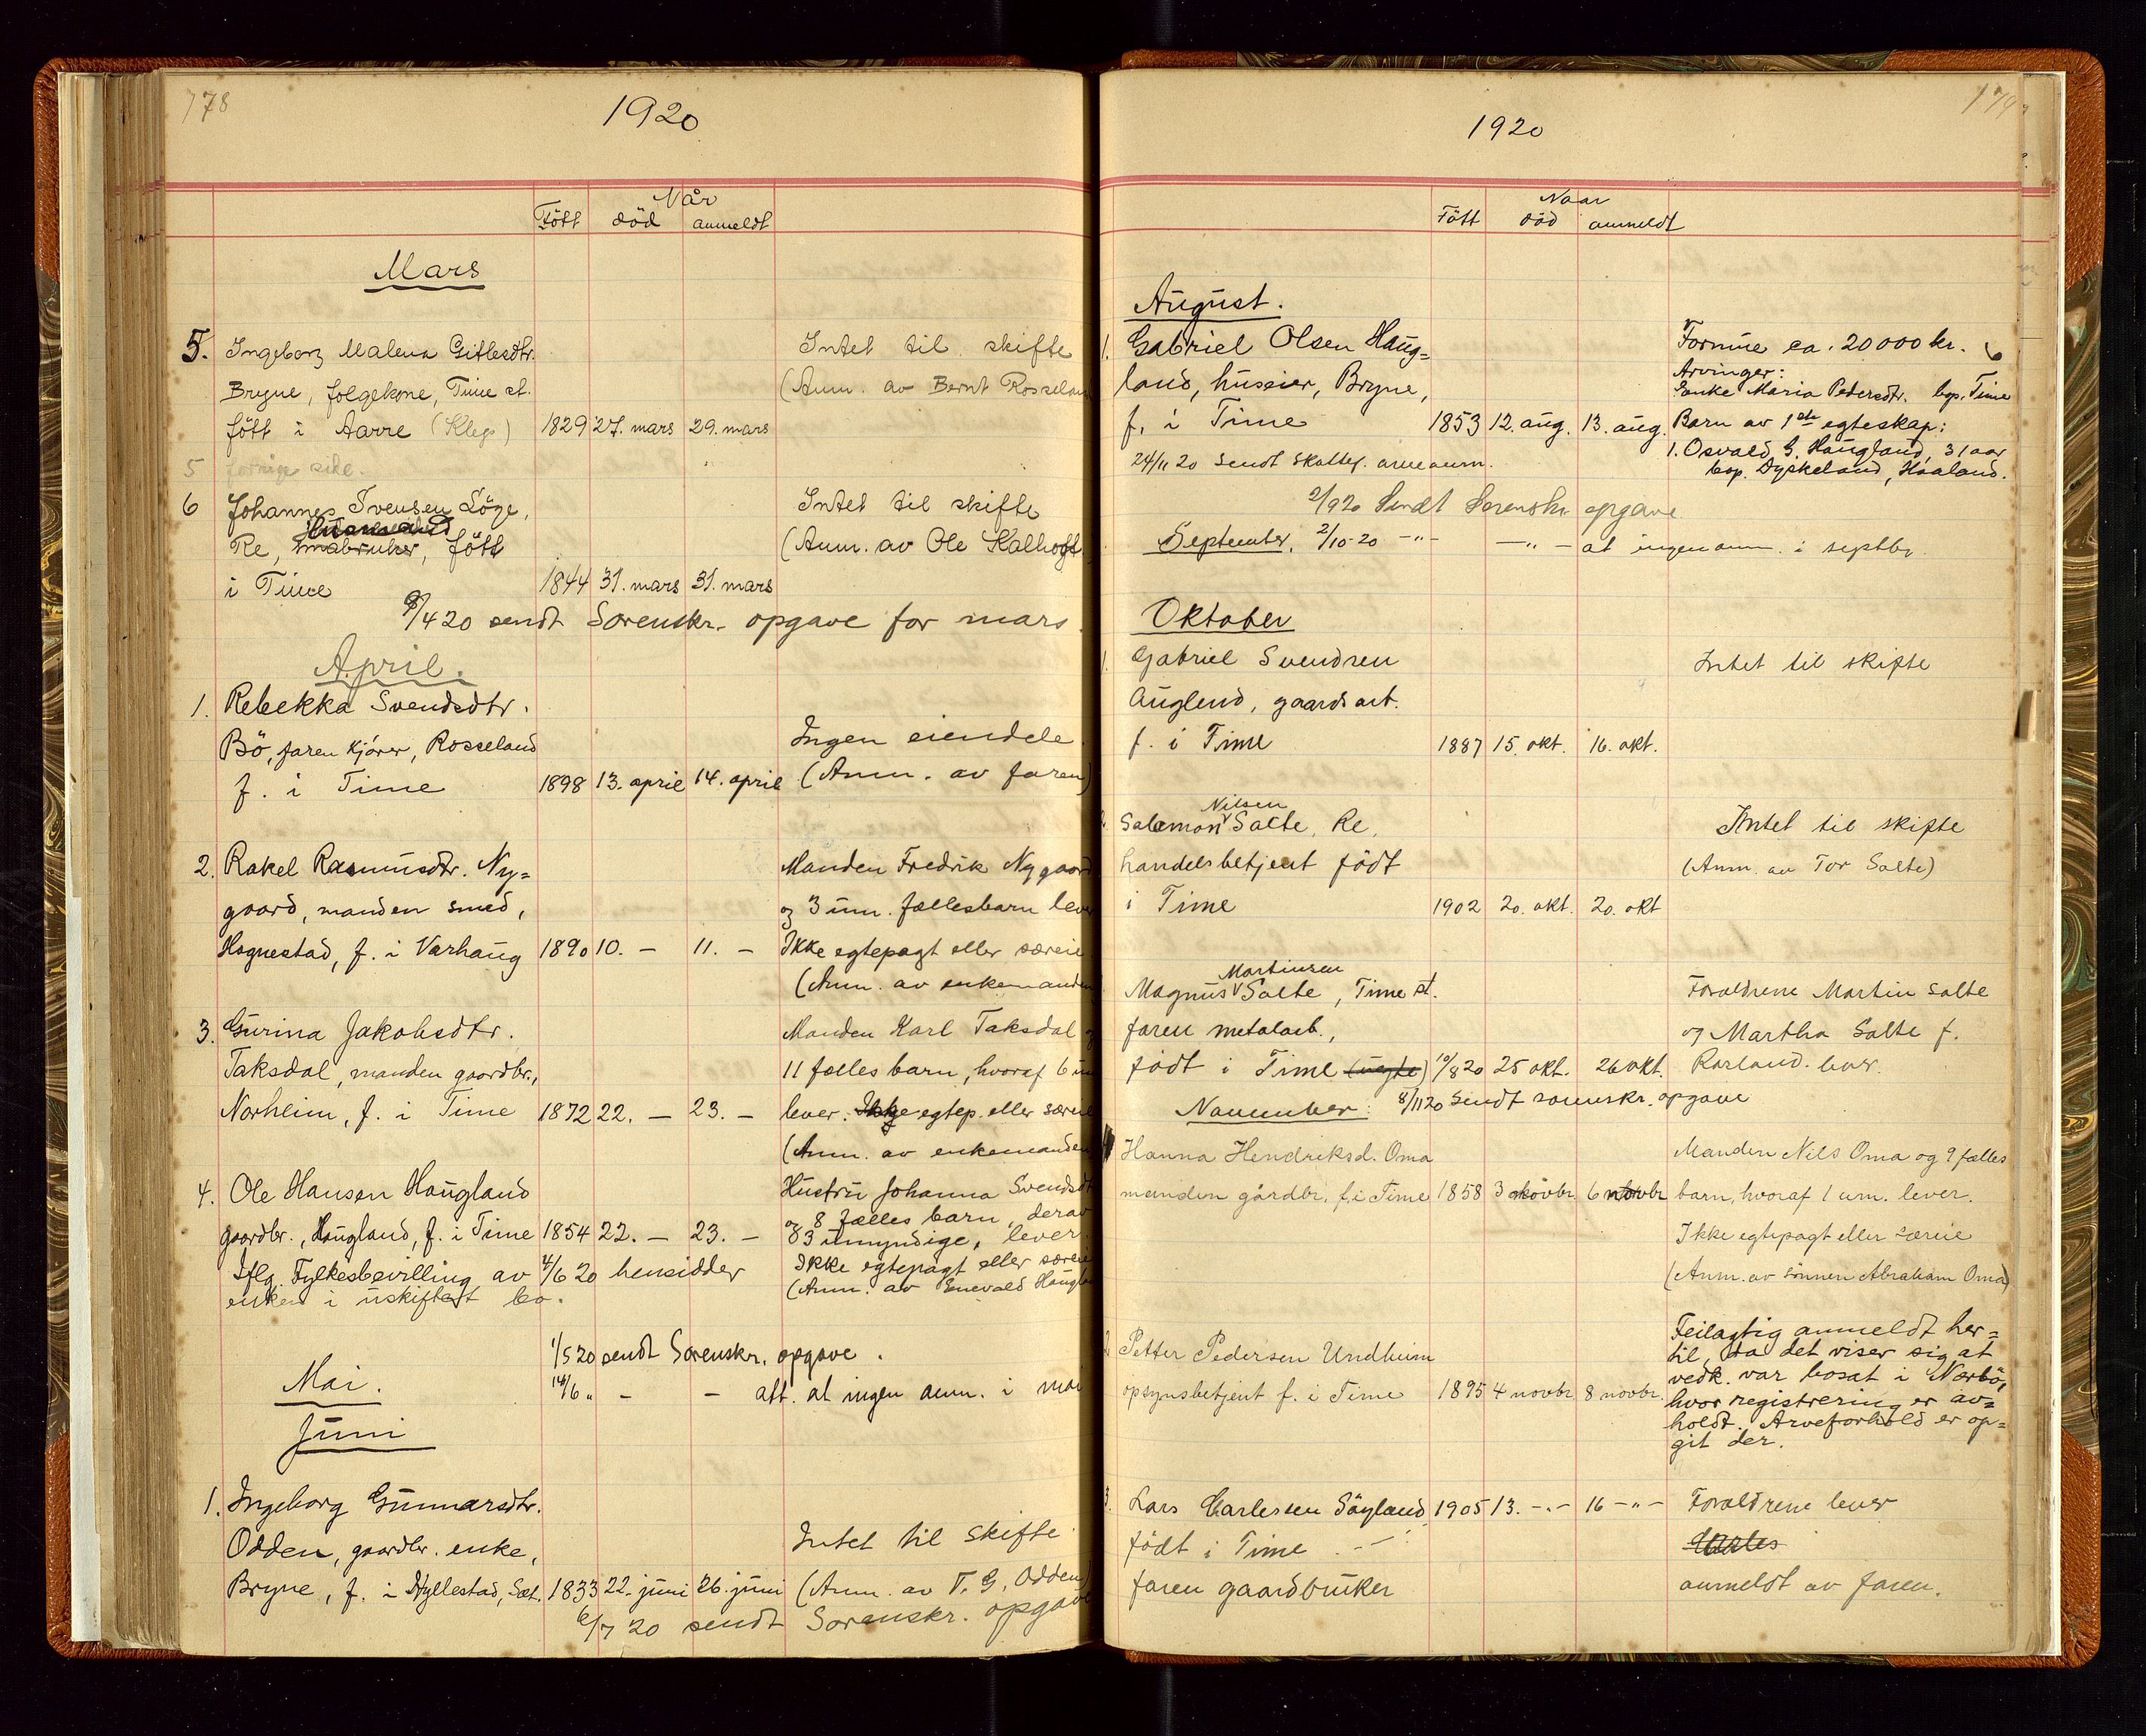 178
1920
Når
Född död anmeldt
Mars
5. Ingeborg Malena Gitlesdtr. Intet til skifte
Bryne, folgekone, Time st. (Anm. av Bernt Rosseland
fött i Aarre (Klep) 1829 27. mars 29. mars
5 forrige side.
6 Johannes Svensen Löge, Intet til skifte
Husmand
Re, småbruker, fött (Anm. av Ole Kalhogt
i Time 1844 31. mars 31. mars
8/4 20 sendt Sorenskr. opgave for mars.
April.
1. Rebekka Svendsdtr.
Bö, faren kjörer, Rosseland Ingen eiendele.
f. i Time 1898 13. april 14. april (Anm. av faren)
2. Rakel Rasmusdtr. Ny= Manden Fredrik Nygaard
gaard, manden smed, og 3 um. fællesbarn lever
Hognestad, f. i Varhaug 1890 10. — 11. — Ikke egtepagt eller særeie
(Anm. av enkemanden
3. Gurina Jakobsdtr. Manden Karl Taksdal og
Taksdal, manden gaardbr., 11 fælles barn, hvoraf 6 um
Norheim, f. i Time 1872 22. — 23. — lever. Ikke egtep. eller særeie
(Anm. av enkemanden
4. Ole Hansen Haugland Hustru Johanna Svendsdt
og 8 fælles barn, derav
gaardbr., Haugland, f. i Time 1854 22. — 23. — 3 umyndige, lever.
Iflg. Fylkesbevilling av 4/6 20 hensidder Ikke egtepagt eller særeie
enken i uskiftet bo. (Anm. av Enevald Haugla
1/5 20 sendt Sorenskr. opgave.
Mai. 14/6 „ - - att. at ingen anm. i mai
Juni
1. Ingeborg Gunnarsdtr.
Odden, gaardbr. enke, Intet til skifte.
Bryne, f. i Hyllestad, Sæt. 1833 22. juni 26. juni (Anm. av T. G. Odden)
6/7 20 sendt Sorenskr. opgave
179
1920
Naar
Fött död anmeldt
August.
1. Gabriel Olsen Haug= Formue ca. 20000 kr.
land, huseier, Bryne, Arvinger:
Enke Maria Pedersdtr. bop. Time
f. i Time 1853 12. aug. 13. aug. Barn av 1ste egteskap:
24/11 20 Sendt skattef. arveanm. 1. Osvald G. Haugland, 31 aar
bop. Dyskeland, Haaland.
2/9 20 Sendt Sorenskr. opgave
September. 2/10-20 -„- -„- at ingen anm. i septbr.
Oktober
1. Gabriel Svendsen Intet til skifte
Auglend, gaardsarb.
f. i Time 1887 15. okt. 16. okt.
Nilsen
Salamon Salte, Re, Intet til skifte
handelsbetjent födt (Anm. av Tor Salte)
i Time 1902 20. okt. 20. okt
Martinsen
Magnus Salte, Time st. Foraldrene Martin Salte
faren metalarb., og Martha Salte f.
födt i Time (uegte) 10/8 20 25 okt. 26 okt. Rosland. lever.
November. 8/11 20 Sendt sorenskr. opgave
1 Hanna Hendriksd. Oma Manden Nils Oma og 9 fælles
manden gårdbr. f. i Time 1858 3 novbr. 6 novbr barn, hvoraf 1 um. lever.
Ikke egtepagt eller særeie
(Anm. av sönnen Abraham Oma)
2 Petter Pedersen Undheim Feilagtig anmeldt her=
til, da det viser sig at
opsynsbetjent f. i Time 1895 4 novbr. 8 novbr. vedk. var bosat i Nærbö,
hvor registrering er av=
holdt. Arveforhold er op=
git der.
3. Lars Carlessen Söyland 1905 13. -„- 16 -„- Foraldrene lever
födt i Time
faren gaardbruker anmeldt av faren.